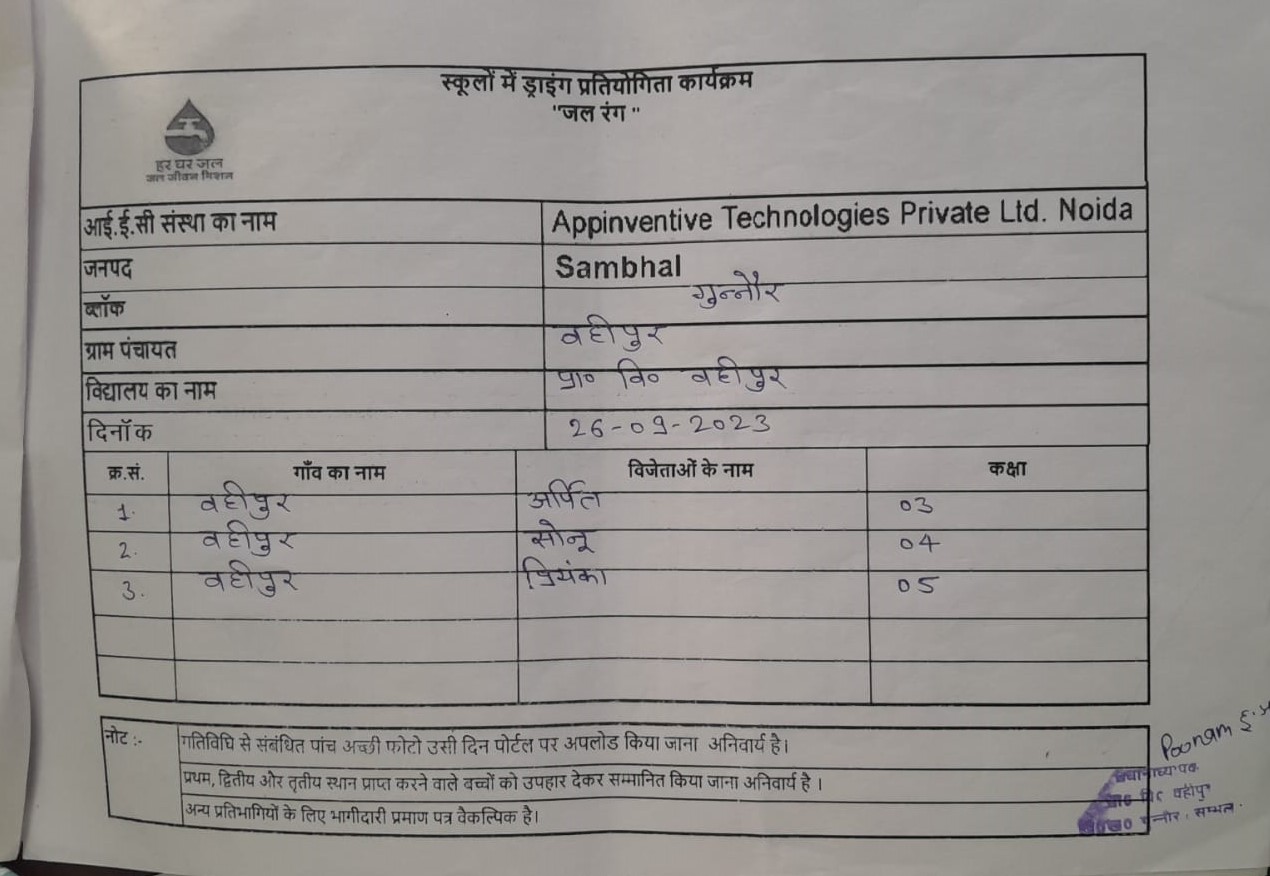 स्कूलों में ड्राइंग प्रतियोगिता कार्यक्रम
"जल रंग "
हर घर जल
जल जीवन मिशन
आई.ई.सी संस्था का नाम Appinventive Technologies Private Ltd. Noida
जनपद Sambhal
ब्लॉक गुन्नौर
ग्राम पंचायत वहीपुर
विद्यालय का नाम प्रा० वि० वहीपुर
दिनॉक 26-09-2023
क्र.सं. गाँव का नाम विजेताओं के नाम कक्षा
1. वहीपुर अर्पित 03
2. वहीपुर सोनू 04
3. वहीपुर प्रियंका 05
नोट :- गतिविधि से संबंधित पांच अच्छी फोटो उसी दिन पोर्टल पर अपलोड किया जाना अनिवार्य है।
प्रथम, द्वितीय और तृतीय स्थान प्राप्त करने वाले बच्चों को उपहार देकर सम्मानित किया जाना अनिवार्य है ।
अन्य प्रतिभागियों के लिए भागीदारी प्रमाण पत्र वैकल्पिक है।
Poonam
प्रधानाध्यापक
वहीपुर
गुन्नौर, सम्भल.